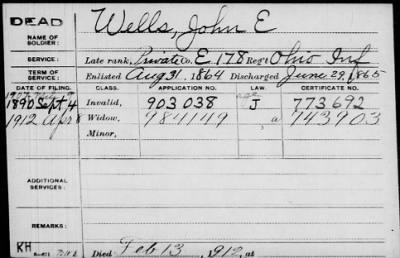 DEAD
Wells, John E
NAME OF SOLDIER:
SERVICE: Late rank, Private Co. E 178 Reg't Ohio Inf
TERM OF SERVICE: Enlisted Aug 31, 1864 Discharged June 29, 1865
DATE OF FILING. CLASS. APPLICATION NO. LAW. CERTIFICATE NO.
1890 Sept 4 Invalid, 903 038 J 773692
1912 Apr 8 Widow, 984149 a 743903
Minor,
ADDITIONAL SERVICES:
REMARKS:
KH Died Feb 13, 1912, at